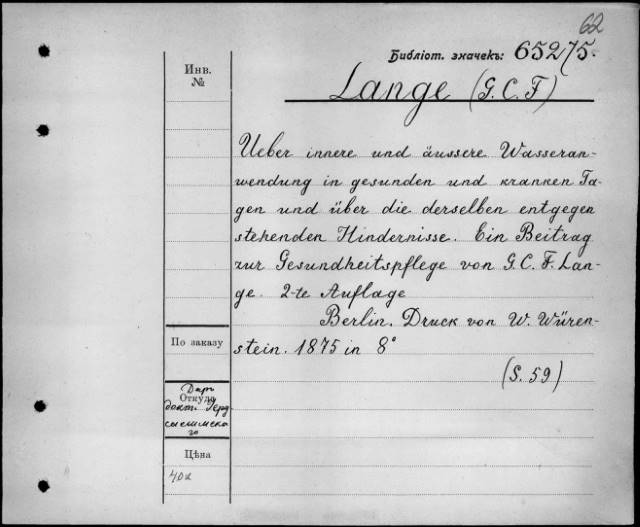 62
Библіот. значекъ: 65275.
Инв.
№
Lange (G. C. F)
Ueber innere und äussere Wasseran-
wendung in gesunden und kranken Ta-
gen und über die derselben entgegen
stehenden Hindernisse. Ein Beitrag
zur Gesundheitspflege von G. C. F. Lan-
ge. 2-te Auflage
Berlin. Druck von W. Würen-
stein. 1875 in 8°
(S. 59)
По заказу
Даръ
Откуда
докт.
Цѣна
40к